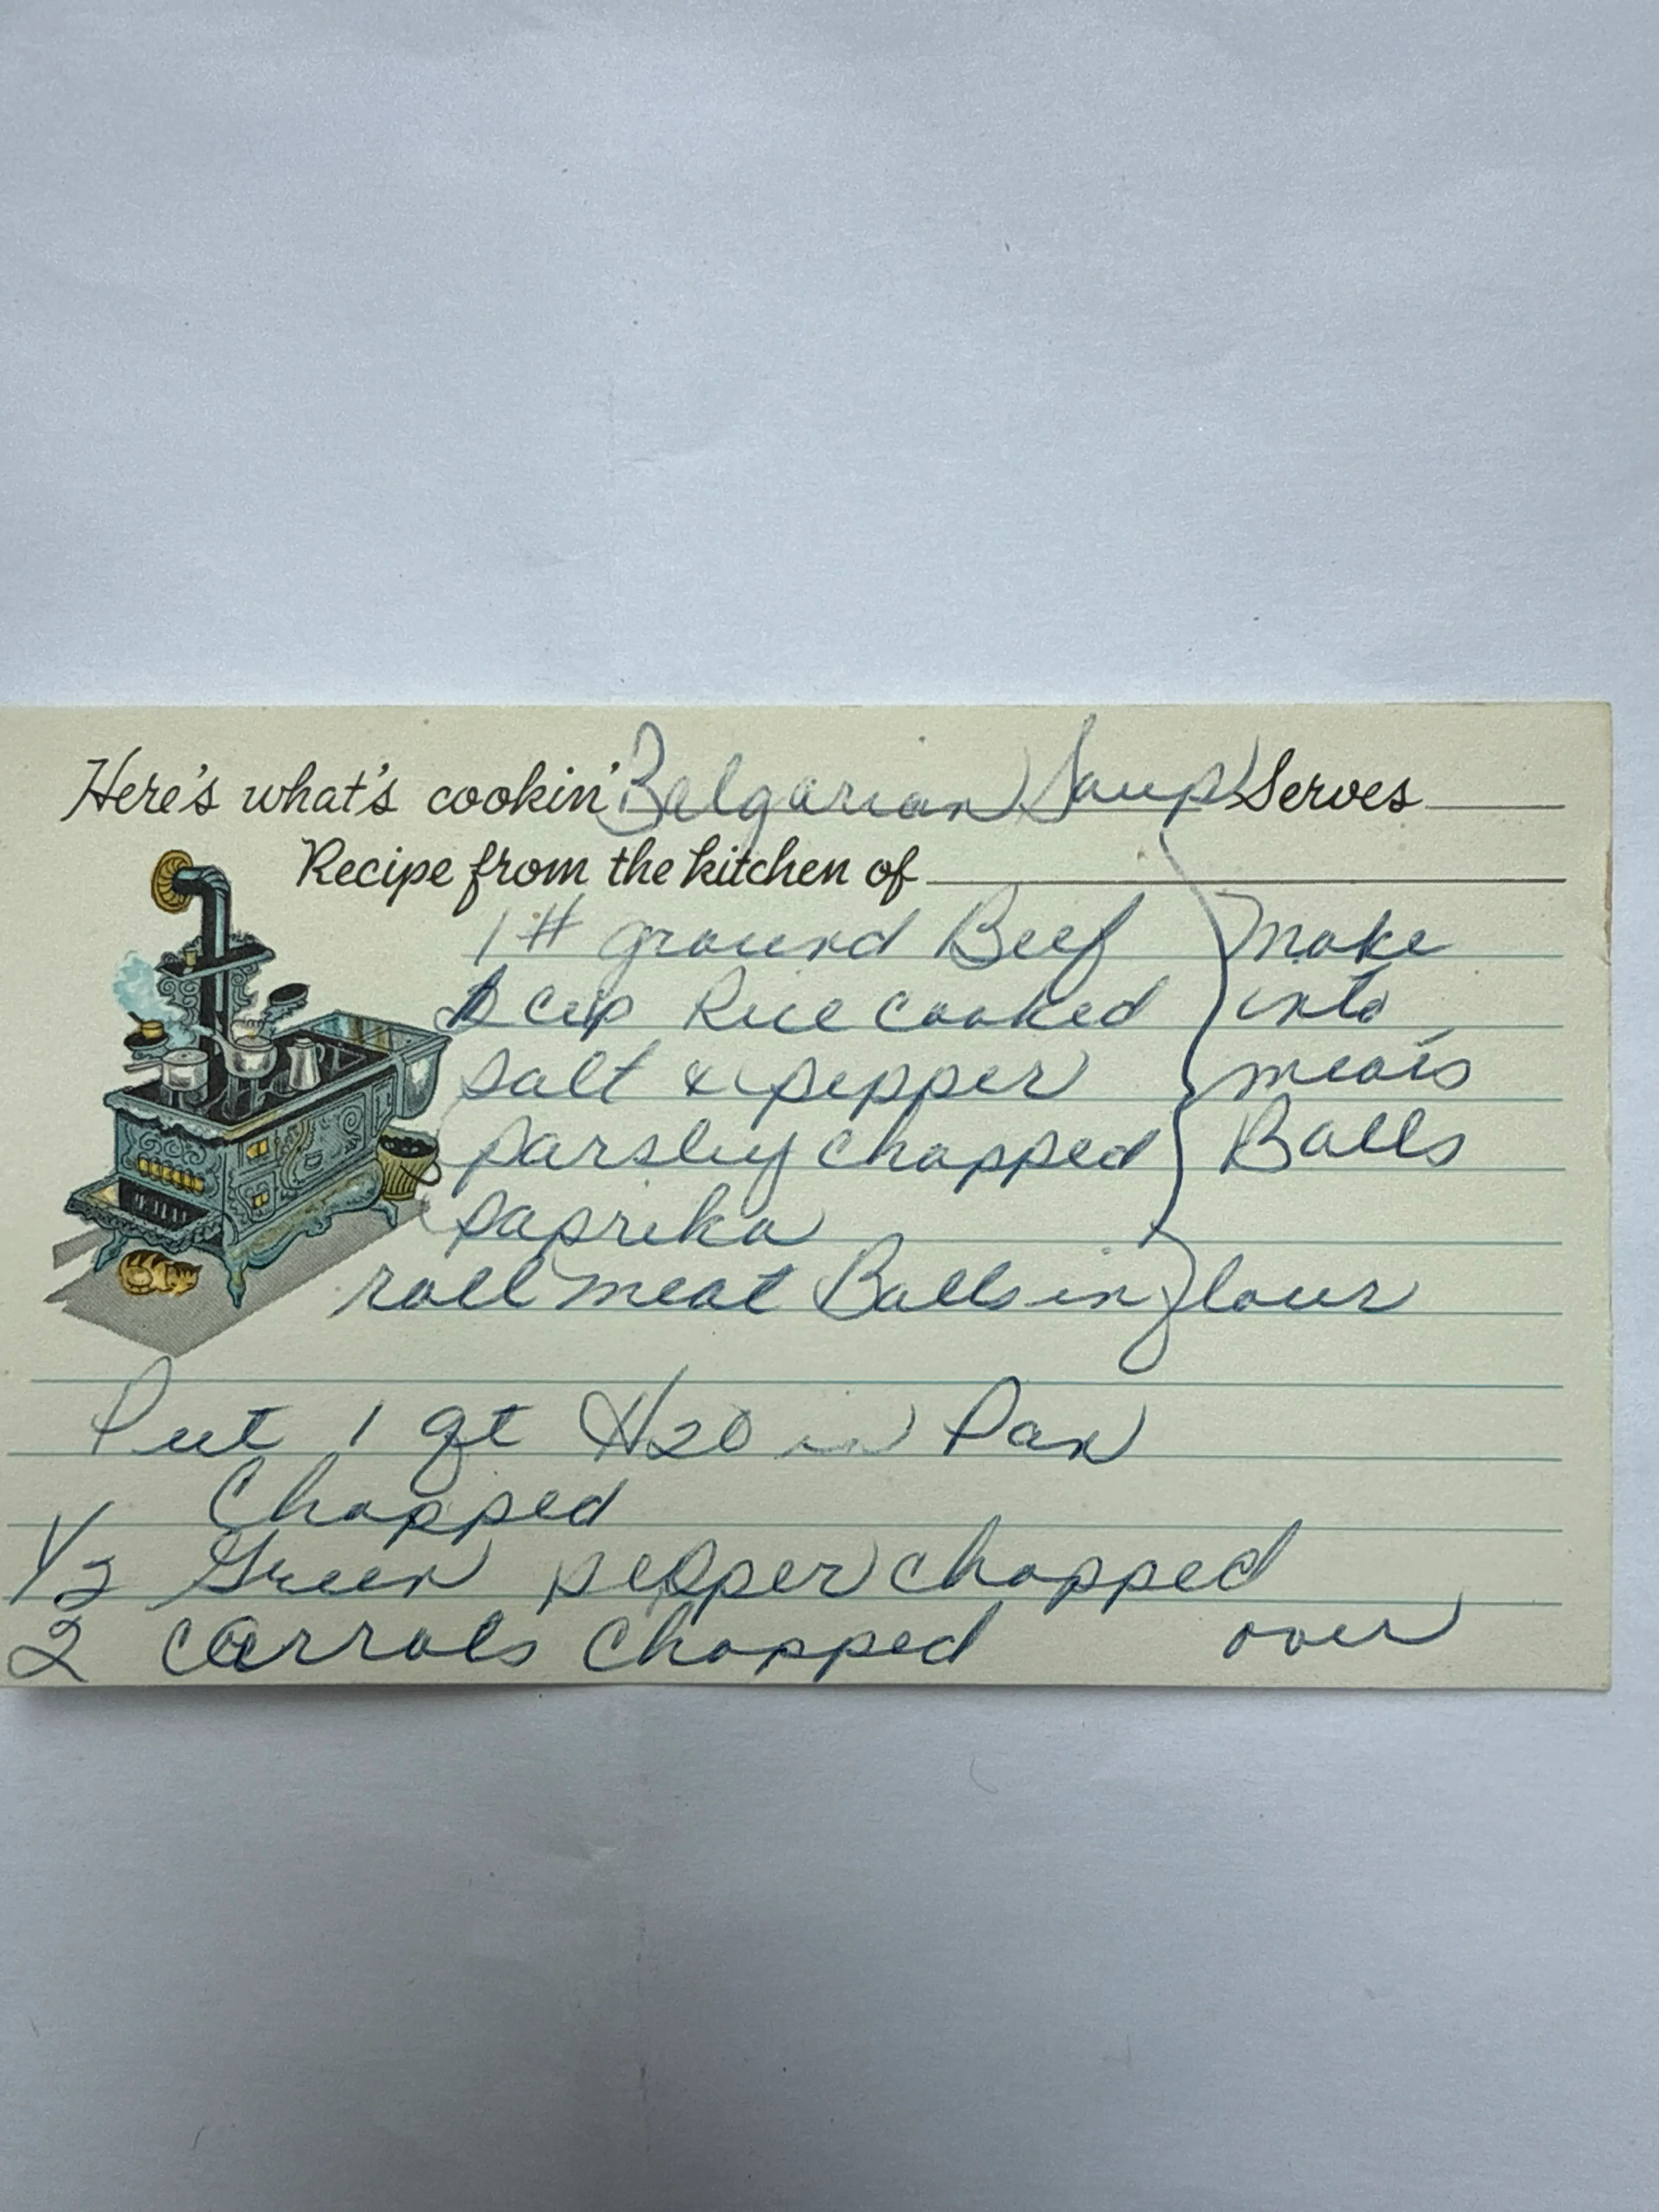 Here's what's cookin' Belgarian Soup Serves
Recipe from the kitchen of
1 # ground Beef
cup Rice cooked
salt & pepper
parsley chopped
paprika
Make
into
meats
Balls
roll meat Balls in flour
Put 1 qt H20 in Pan
Chopped
1/2 Green pepper chopped
2 carrots chopped over